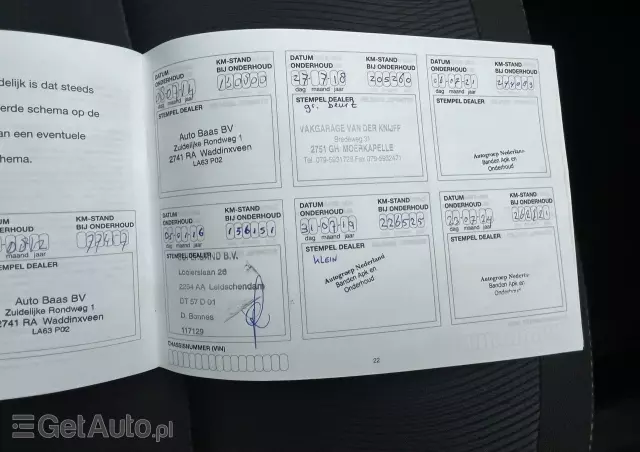 delijk is dat steeds
erde schema op de
an een eventuele
hema.
KM-STAND
BIJ ONDERHOUD
77417
maand jaar
TEMPEL DEALER
Auto Baas BV
Zuidelijke Rondweg 1
2741 RA Waddinxveen
LA63 P02
DATUM
ONDERHOUD
KM-STAND
BIJ ONDERHOUD
130800
dag maand jaar
STEMPEL DEALER
Auto Baas BV
Zuidelijke Rondweg 1
2741 RA Waddinxveen
LA63 P02
DATUM
ONDERHOUD
KM-STAND
BIJ ONDERHOUD
27 7 18
205260
dag maand jaar
STEMPEL DEALER
gr. beurt
VAKGARAGE VAN DER KNIJFF
Bredeweg 31
2751 GH MOERKAPELLE
DATUM
ONDERHOUD
KM-STAND
BIJ ONDERHOUD
dag maand jaar
STEMPEL DEALER
Autogroep Nederland
Banden Apk en
Onderhoud
DATUM
ONDERHOUD
KM-STAND
BIJ ONDERHOUD
156151
dag maand jaar
STEMPEL DEALER
B.V.
2264 AA Leidschendam
DT 57 D 01
D. Bonnes
117129
DATUM
ONDERHOUD
KM-STAND
BIJ ONDERHOUD
31 07 19
226525
dag maand jaar
STEMPEL DEALER
KLEIN
Autogroep Nederland
Banden Apk en
Onderhoud
DATUM
ONDERHOUD
KM-STAND
BIJ ONDERHOUD
dag maand jaar
STEMPEL DEALER
Autogroep Nederland
Banden Apk en
Onderhoud
CHASSISNUMMER (VIN)
22
GetAuto.pl